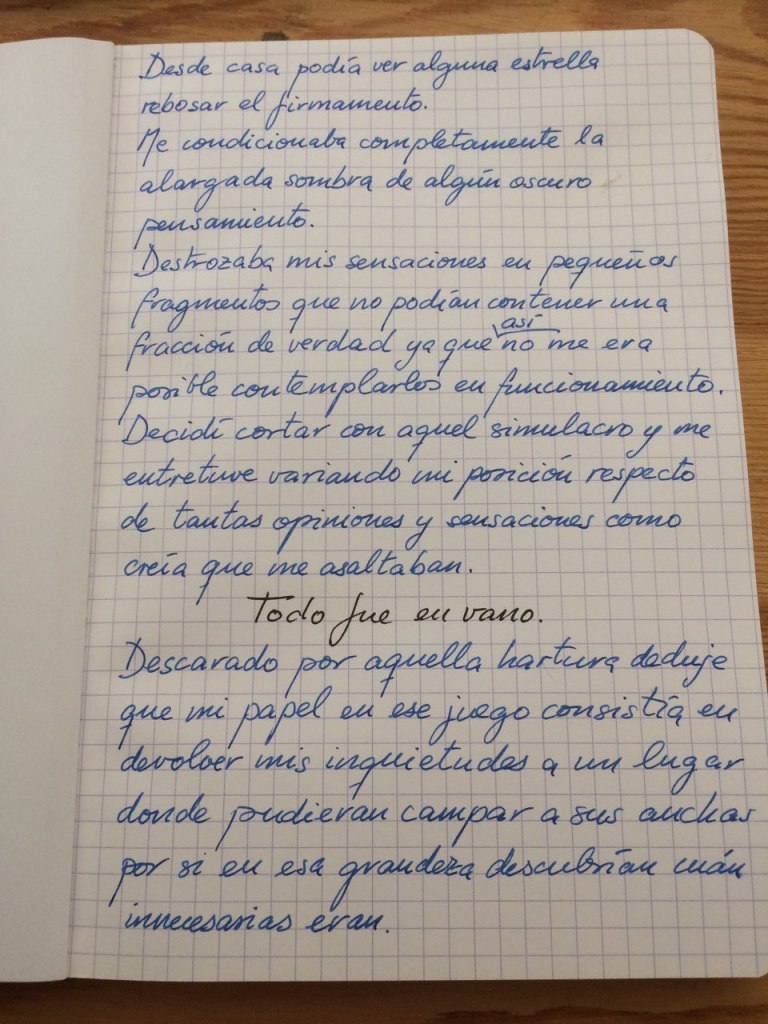 Desde casa podía ver alguna estrella
rebosar el firmamento.
Me condicionaba completamente la
alargada sombra de algún oscuro
pensamiento.
Destrozaba mis sensaciones en pequeños
fragmentos que no podían contener una
así
fracción de verdad ya que no me era
posible contemplarlos en funcionamiento.
Decidí cortar con aquel simulacro y me
entretuve variando mi posición respecto
de tantas opiniones y sensaciones como
creía que me asaltaban.
Todo fue en vano.
Descarado por aquella hartura deduje
que mi papel en ese juego consistía en
devolver mis inquietudes a un lugar
donde pudieran campar a sus anchas
por si en esa grandeza descubrían cuán
innecesarias eran.